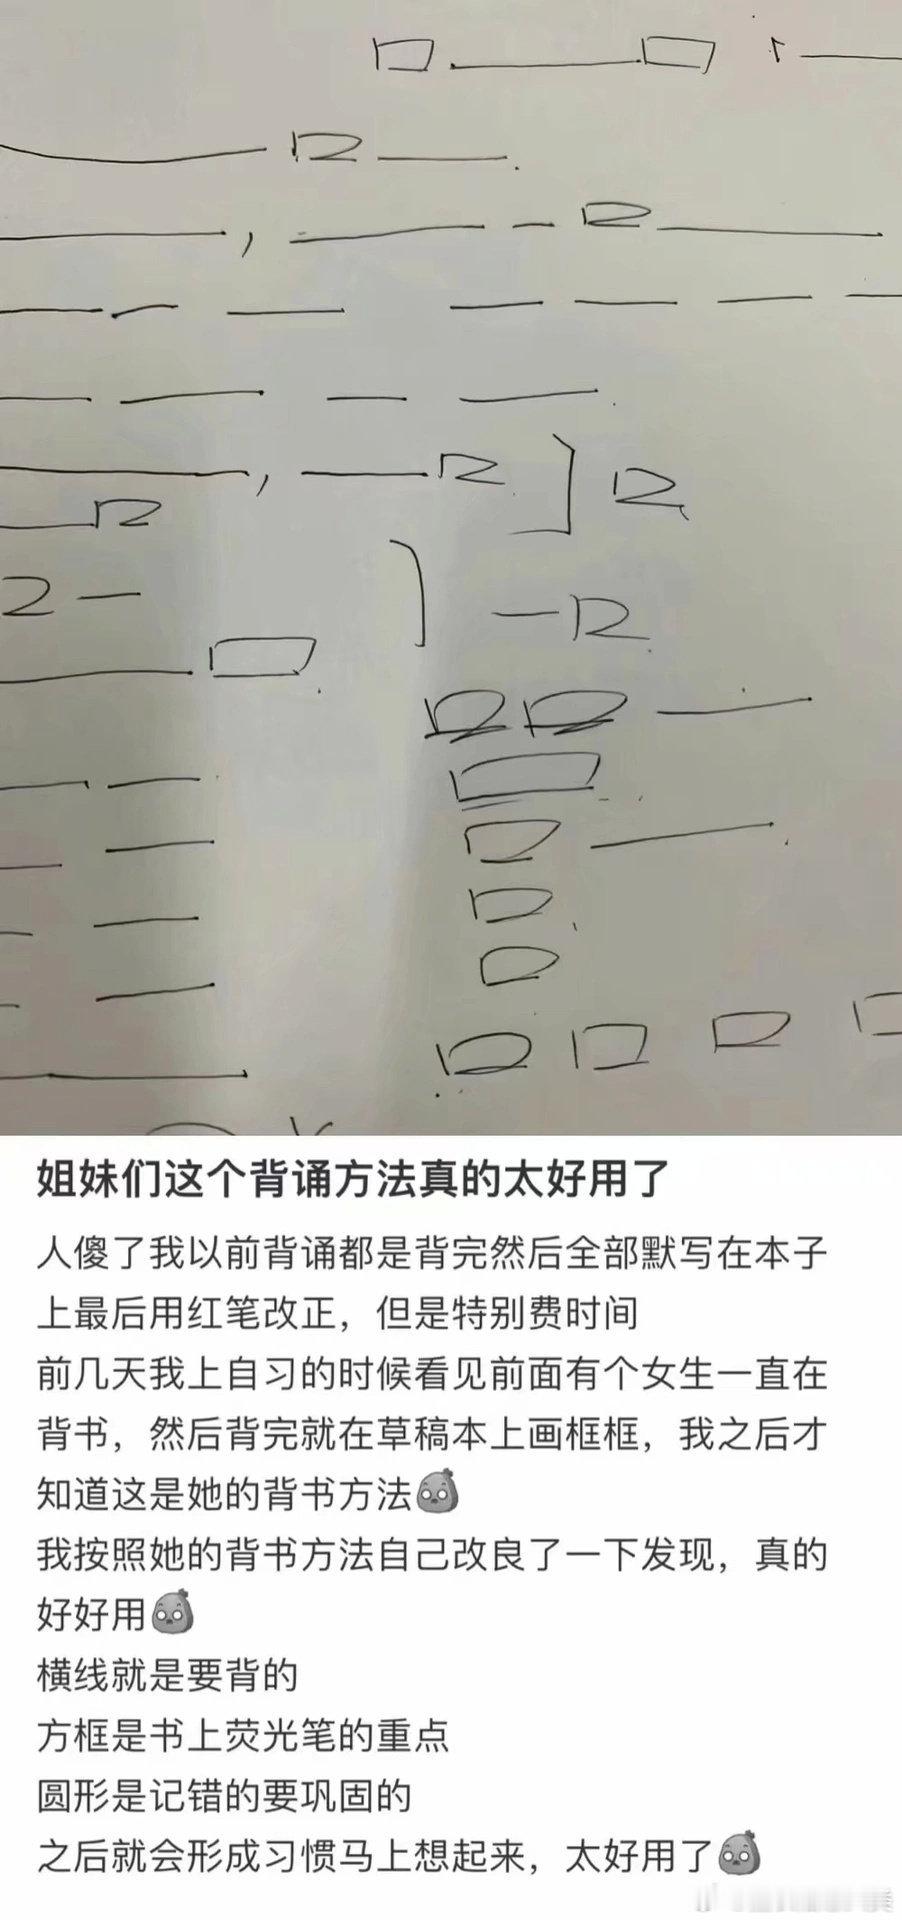 姐妹们这个背诵方法真的太好用了
人傻了我以前背诵都是背完然后全部默写在本子
上最后用红笔改正，但是特别费时间
前几天我上自习的时候看见前面有个女生一直在
背书，然后背完就在草稿本上画框框，我之后才
知道这是她的背书方法
我按照她的背书方法自己改良了一下发现，真的
好好用
横线就是要背的
方框是书上荧光笔的重点
圆形是记错的要巩固的
之后就会形成习惯马上想起来，太好用了